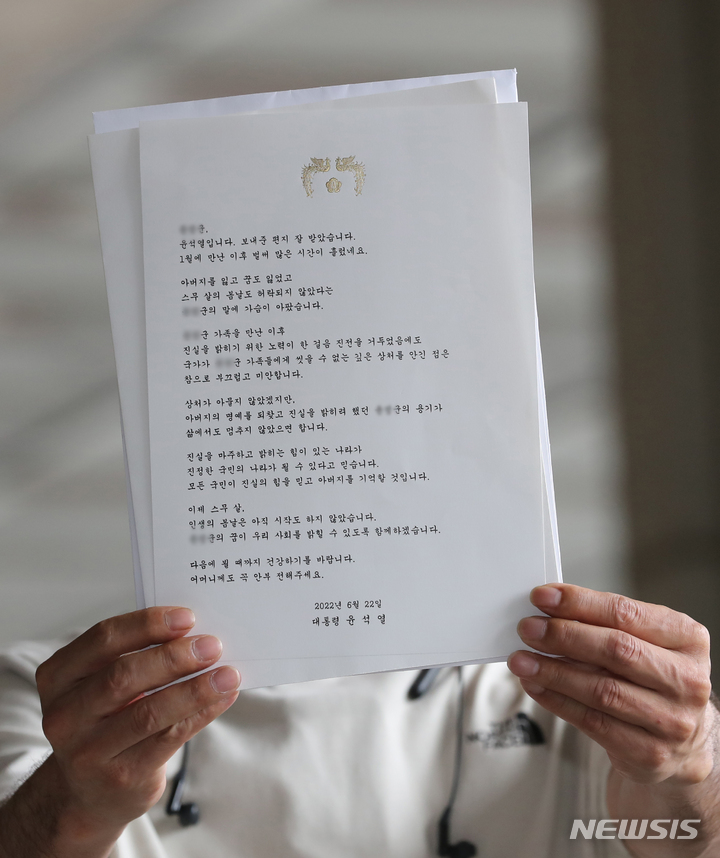 군,
윤석열입니다. 보내준 편지 잘 받았습니다.
1월에 만난 이후 벌써 많은 시간이 흘렀네요.
아버지를 잃고 꿈도 잃었고
스무 살의 봄날도 허락되지 않았다는
군의 말에 가슴이 아팠습니다.
군 가족을 만난 이후
진실을 밝히기 위한 노력이 한 걸음 진전을 거두었음에도
국가가 군 가족들에게 씻을 수 없는 깊은 상처를 안긴 점은
참으로 부끄럽고 미안합니다.
상처가 아물지 않았겠지만,
아버지의 명예를 되찾고 진실을 밝히려 했던 군의 용기가
삶에서도 멈추지 않았으면 합니다.
진실을 마주하고 밝히는 힘이 있는 나라가
진정한 국민의 나라가 될 수 있다고 믿습니다.
모든 국민이 진실의 힘을 믿고 아버지를 기억할 것입니다.
이제 스무 살,
인생의 봄날은 아직 시작도 하지 않았습니다.
군의 꿈이 우리 사회를 밝힐 수 있도록 함께하겠습니다.
다음에 뵐 때까지 건강하기를 바랍니다.
어머니께도 꼭 안부 전해주세요.
2022년 6월 22일
대통령 윤석열
NEWSIS